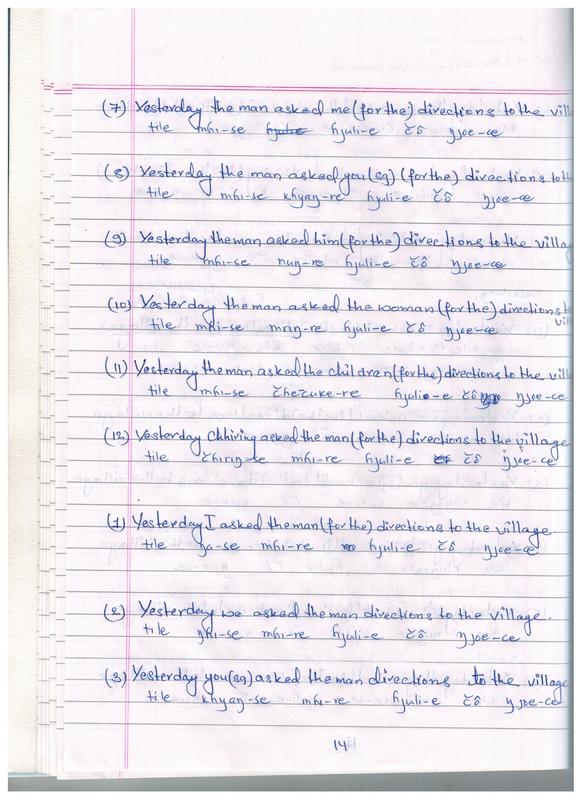 (7) Yesterday the man asked me (for the) directions to the vill
tile mɦi-se ɦjuli-e č̌ô ŋjoe-ce
(8) Yesterday the man asked you (sg) (for the) directions to th
tile mɦi-se khyaŋ-re ɦjuli-e č̌ô ŋjoe-ce
(9) Yesterday the man asked him (for the) directions to the villa
tile mɦi-se nuŋ-re ɦjuli-e č̌ô ŋjoe-ce
(10) Yesterday the man asked the woman (for the) directions t
vil
tile mɦi-se mriŋ-re ɦjuli-e č̌ô ŋjoe-ce
(11) Yesterday the man asked the children (for the) directions to the vill
tile mɦi-se čhečuke-re ɦjuli-e č̌ô ŋjoe-ce
(12) Yesterday Chhiring asked the man (for the) directions to the village
tile čhiriŋ-se mɦi-re ɦjuli-e č̌ô ŋjoe-ce
(1) Yesterday I asked the man (for the) directions to the village
tile ŋa-se mɦi-re ɦjuli-e č̌ô ŋjoe-ce
(2) Yesterday we asked the man directions to the village.
tile ŋɦi-se mɦi-re ɦjuli-e č̌ô ŋjoe-ce
(3) Yesterday you (sg) asked the man directions to the village
tile khyaŋ-se mɦi-re ɦjuli-e č̌ô ŋjoe-ce
14